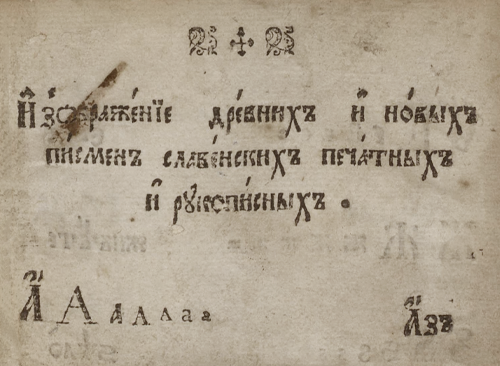 И҆зѡбраже́нїе дре́внихъ и҆ но́выхъ
пи́сменъ славе́нскихъ печа́тныхъ
и҆ рꙋкопи́сныхъ .
А҆ А а а а а а А҆зъ